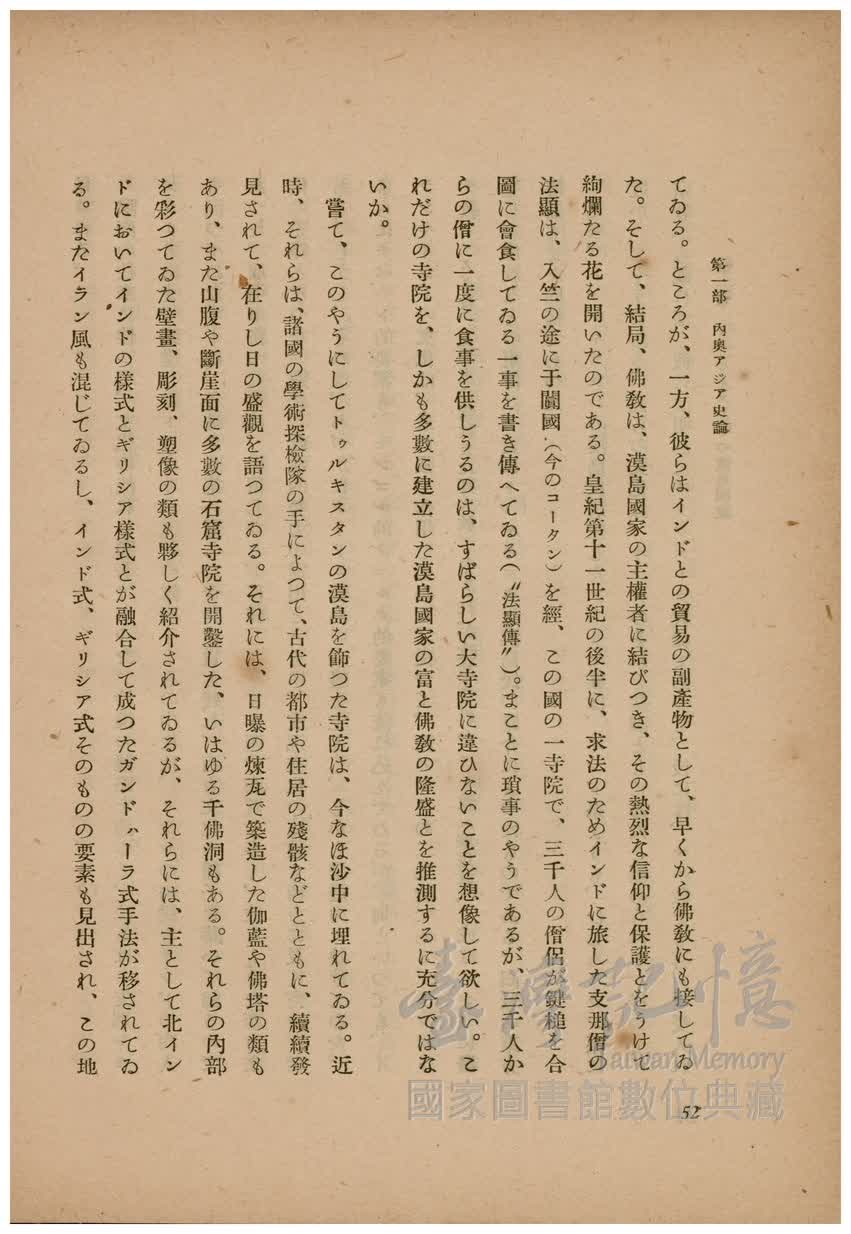 第一部 內奧アジア史論
てゐる。ところが、一方、彼らはインドとの貿易の副產物として、早くから佛敎にも接してゐ
た。そして、結局、佛敎は、漠島國家の主權者に結びつき、その熱烈な信仰と保護とをうけて
絢爛たる花を開いたのである。皇紀第十一世紀の後半に、求法のためインドに旅した支那僧の
法顯は、入竺の途に于闐國（今のコータン）を經、この國の一寺院で、三千人の僧侶が鍵槌を合
圖に會食してゐる一事を書き傳へてゐる（〝法顯傳〟）。まことに瑣事のやうであるが、三千人か
らの僧に一度に食事を供しうるのは、すばらしい大寺院に違ひないことを想像して欲しい。こ
れだけの寺院を、しかも多數に建立した漠島國家の富と佛敎の隆盛とを推測するに充分ではな
いか。
嘗て、このやうにしてトゥルキスタンの漠島を飾つた寺院は、今なほ沙中に埋れてゐる。近
時、それらは、諸國の學術探檢隊の手によつて、古代の都市や住居の殘骸などとともに、續續發
見されて、在りし日の盛觀を語つてゐる。それには、日曝の煉瓦で築造した伽藍や佛塔の類も
あり、また山腹や斷崖面に多數の石窟寺院を開鑿した、いはゆる千佛洞もある。それらの內部
を彩つてゐた壁畫、彫刻、塑像の類も夥しく紹介されてゐるが、それらには、主として北イン
ドにおいてインドの樣式とギリシア樣式とが融合して成つたガンドハーラ式手法が移されてゐ
る。またイラン風も混じてゐるし、インド式、ギリシア式そのものの要素も見出され、この地
52
臺灣記憶
Taiwan Memory
國家圖書館數位典藏